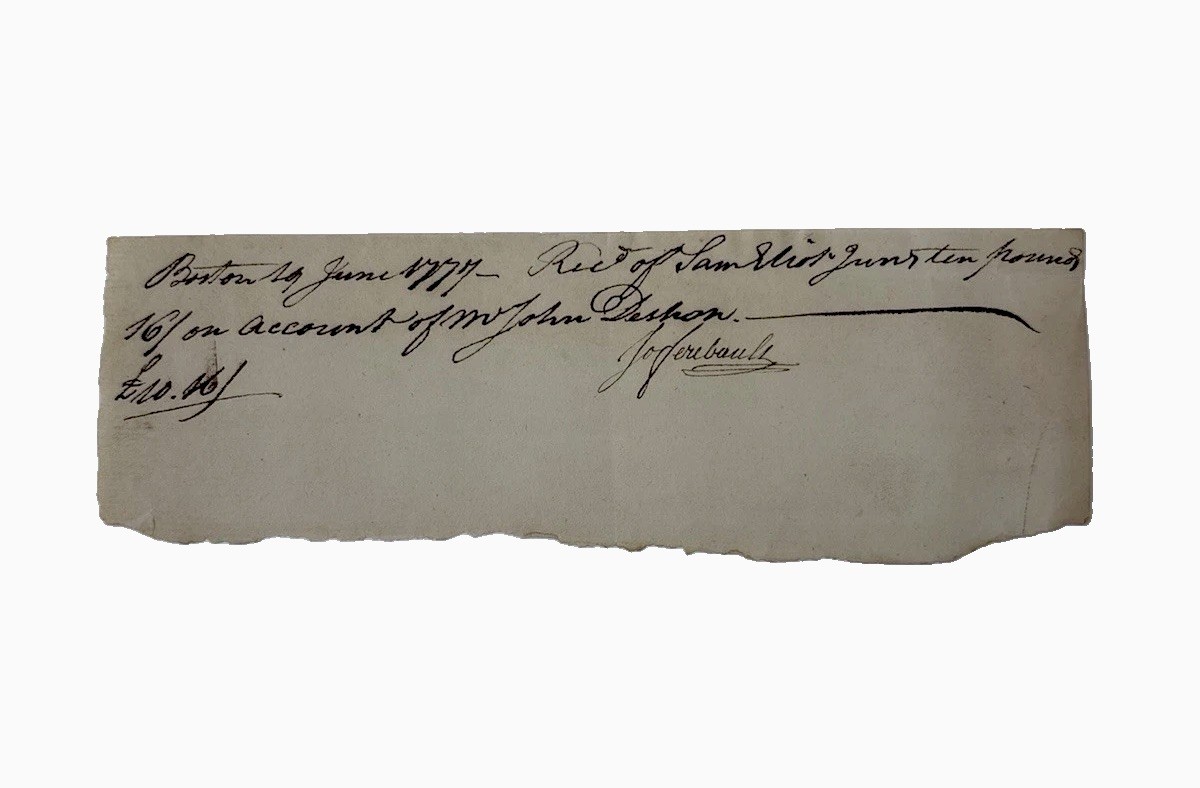 Boston 19 June 1777 – Recd of Sam Eliot Junr ten pounds
16/ on account of Mr John Deshon. —
£10.16/